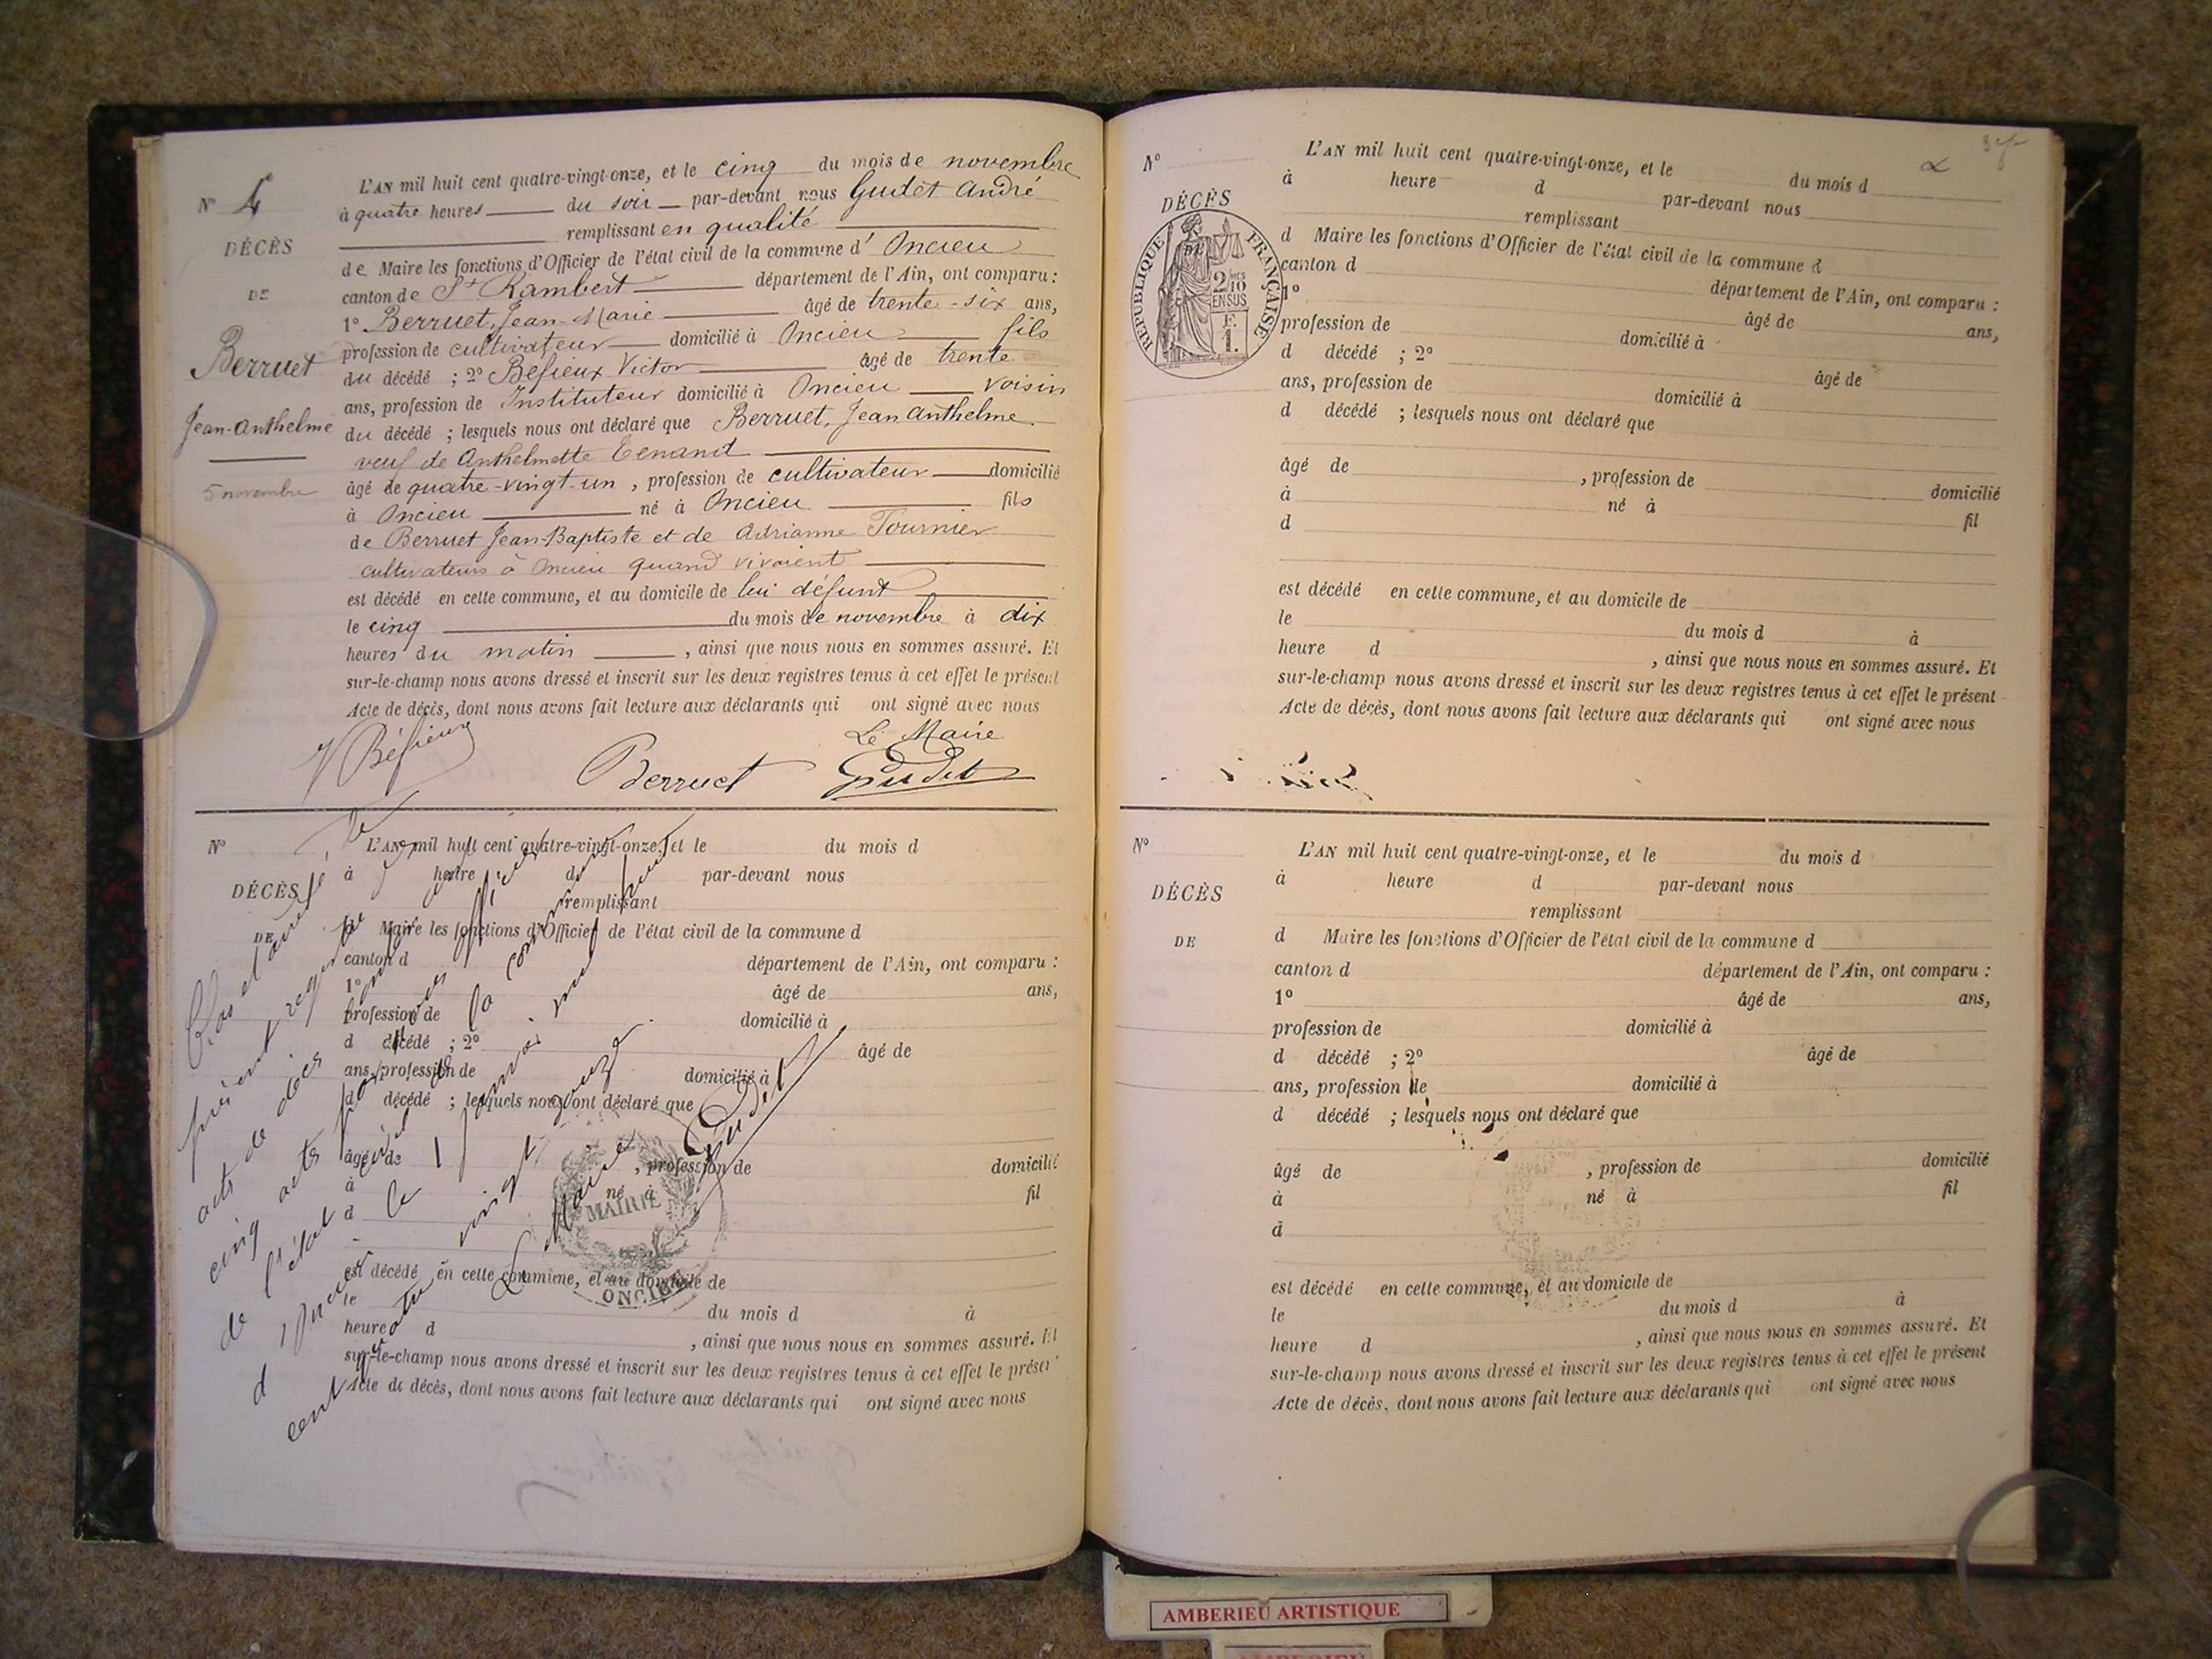 N° 4
DÉCÈS
DE
Berruet
Jean-Anthelme
5 novembre
L'AN mil huit cent quatre-vingt-onze, et le cinq du mois de novembre
à quatre heures du soir par-devant nous Gudet André
remplissant en qualité
de Maire les fonctions d'Officier de l'état civil de la commune d' Oncieu
canton de St Rambert département de l'Ain, ont comparu :
1° Berruet, Jean-Marie âgé de trente-six ans,
profession de cultivateur domicilié à Oncieu fils
du décédé ; 2° Béfieux Victor âgé de trente
ans, profession de Instituteur domicilié à Oncieu voisin
du décédé ; lesquels nous ont déclaré que Berruet, Jean Anthelme
veuf de Anthelmette Tenand
âgé de quatre-vingt-un , profession de cultivateur domicilié
à Oncieu né à Oncieu fils
de Berruet Jean-Baptiste et de Adrianne Tournier
cultivateurs à Oncieu quand vivaient
est décédé en cette commune, et au domicile de lui défunt
le cinq du mois de novembre à dix
heures du matin , ainsi que nous nous en sommes assuré. Et
sur-le-champ nous avons dressé et inscrit sur les deux registres tenus à cet effet le présent
Acte de décès, dont nous avons fait lecture aux déclarants qui ont signé avec nous
Le Maire
V Béfieux Berruet Gudet
N°
DÉCÈS
DE
L'AN mil huit cent quatre-vingt-onze, et le du mois d
à heure d par-devant nous
remplissant
d Maire les fonctions d'Officier de l'état civil de la commune d
canton d département de l'Ain, ont comparu :
1° âgé de ans,
profession de domicilié à
d décédé ; 2° âgé de
ans, profession de domicilié à
d décédé ; lesquels nous ont déclaré que
âgé de , profession de domicilié
à né à fil
d
est décédé en cette commune, et au domicile de
le du mois d à
heure d , ainsi que nous nous en sommes assuré. Et
sur-le-champ nous avons dressé et inscrit sur les deux registres tenus à cet effet le présent
Acte de décès, dont nous avons fait lecture aux déclarants qui ont signé avec nous
Clos et arrêté le
présent registre
acts de décès
cinq acts par
de l'état civil de la commune
d'Oncieu le 1er janvier mil huit
cent quatre vingt onze
Le Maire
Gudet
MAIRIE
ONCIEU
N°
DÉCÈS
REPUBLIQUE FRANÇAISE
2/10 MES
EN SUS
F.
1.
L'AN mil huit cent quatre-vingt-onze, et le du mois d
à heure d par-devant nous
remplissant
d Maire les fonctions d'Officier de l'état civil de la commune d
canton d département de l'Ain, ont comparu :
1° âgé de ans,
profession de domicilié à
d décédé ; 2° âgé de
ans, profession de domicilié à
d décédé ; lesquels nous ont déclaré que
âgé de , profession de domicilié
à né à fil
d
est décédé en cette commune, et au domicile de
le du mois d à
heure d , ainsi que nous nous en sommes assuré. Et
sur-le-champ nous avons dressé et inscrit sur les deux registres tenus à cet effet le présent
Acte de décès, dont nous avons fait lecture aux déclarants qui ont signé avec nous
N°
DÉCÈS
DE
L'AN mil huit cent quatre-vingt-onze, et le du mois d
à heure d par-devant nous
remplissant
d Maire les fonctions d'Officier de l'état civil de la commune d
canton d département de l'Ain, ont comparu :
1° âgé de ans,
profession de domicilié à
d décédé ; 2° âgé de
ans, profession de domicilié à
d décédé ; lesquels nous ont déclaré que
âgé de , profession de domicilié
à né à fil
d
est décédé en cette commune, et au domicile de
le du mois d à
heure d , ainsi que nous nous en sommes assuré. Et
sur-le-champ nous avons dressé et inscrit sur les deux registres tenus à cet effet le présent
Acte de décès, dont nous avons fait lecture aux déclarants qui ont signé avec nous
AMBERIEU ARTISTIQUE
AMBERIEU